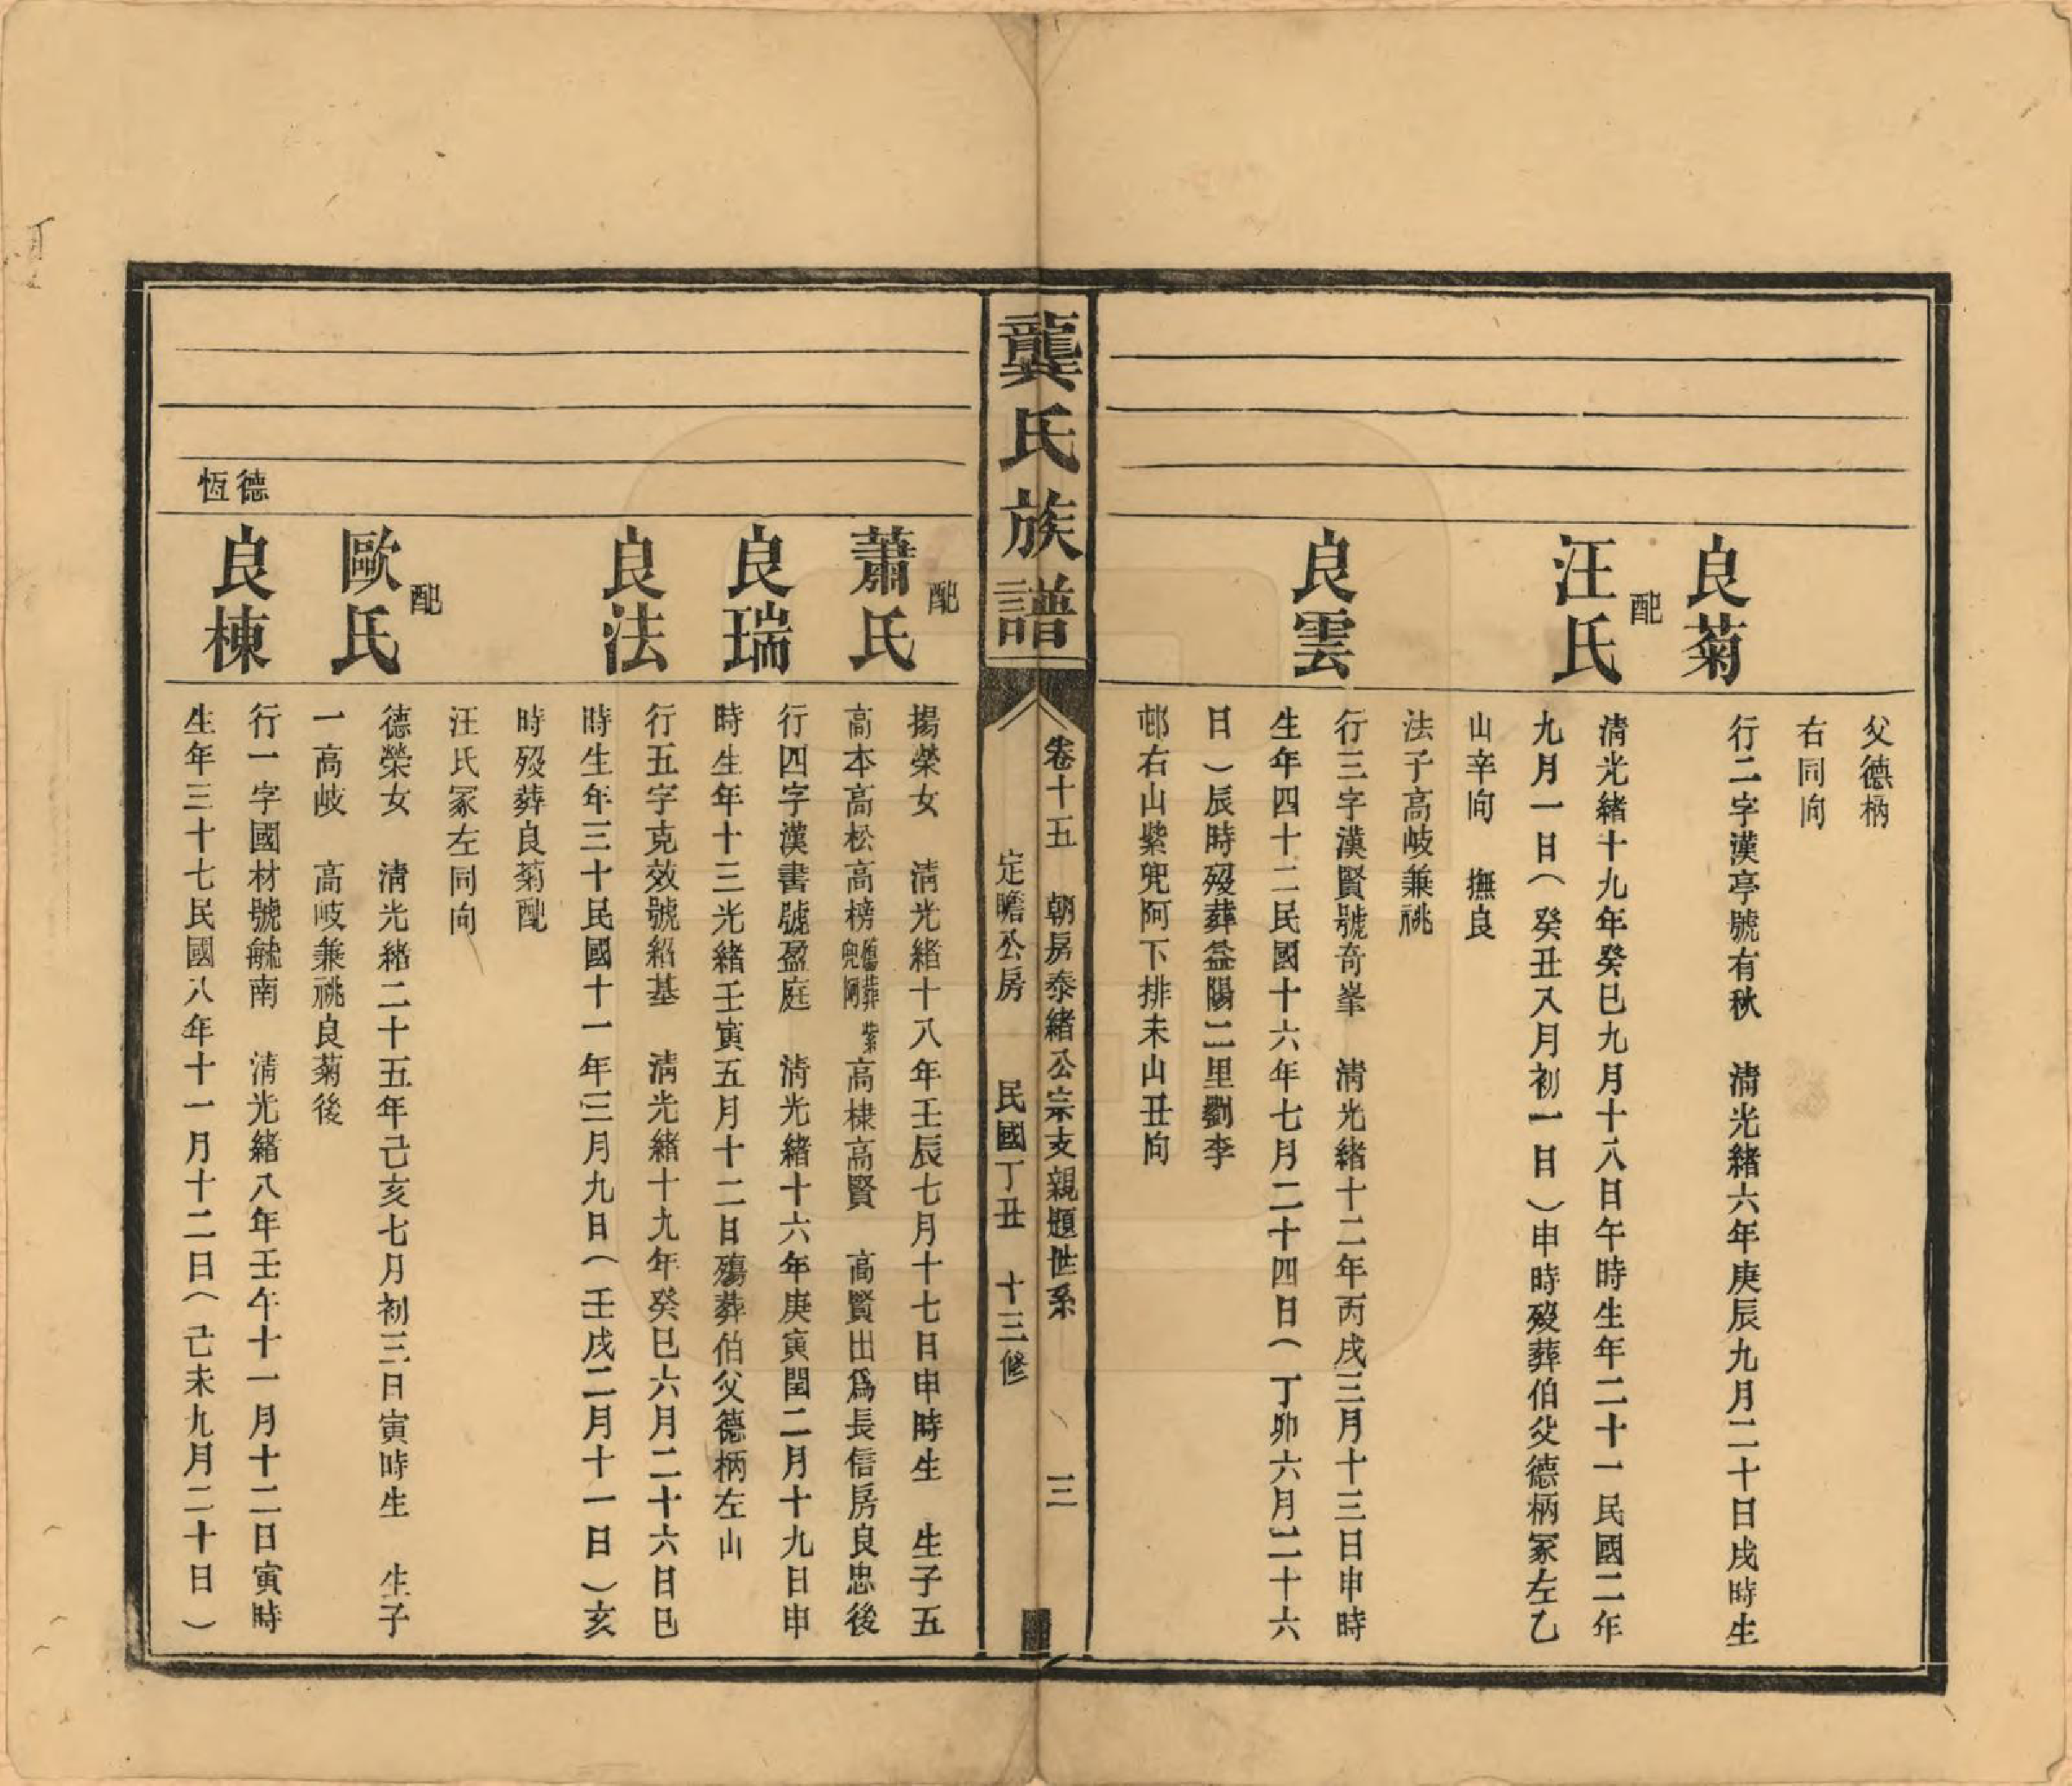 父德柄
右同向
良菊
行二字漢亭號有秋　清光緒六年庚辰九月二十日戌時生
配
汪氏
清光緒十九年癸巳九月十八日午時生年二十一民國二年
九月一日（癸丑八月初一日）申時歿葬伯父德柄冢左乙
山辛向　撫良
法子高岐兼祧
良雲
行三字漢賢號奇峯　清光緒十二年丙戌三月十三日申時
生年四十二民國十六年七月二十四日（丁卯六月二十六
日）辰時歿葬益陽二里劉李
邨右山紫兜阿下排未山丑向
龔氏族譜
卷十五　朝房泰緒公宗支親題世系　三
定瞻公房　民國丁丑　十三修
配
蕭氏
揚榮女　清光緒十八年壬辰七月十七日申時生　生子五
高本高松高榜殤葬紫兜阿高棣高賢　高賢出爲長信房良忠後
良瑞
行四字漢書號盈庭　清光緒十六年庚寅閏二月十九日申
時生年十三光緒壬寅五月十二日殤葬伯父德柄左山
良法
行五字克效號紹基　清光緒十九年癸巳六月二十六日巳
時生年三十民國十一年三月九日（壬戌二月十一日）亥
時歿葬良菊配
汪氏冢左同向
配
歐氏
德榮女　清光緒二十五年己亥七月初三日寅時生　生子
一高岐　高岐兼祧良菊後
德恆
良棟
行一字國材號毓南　清光緒八年壬午十一月十二日寅時
生年三十七民國八年十一月十二日（己未九月二十日）